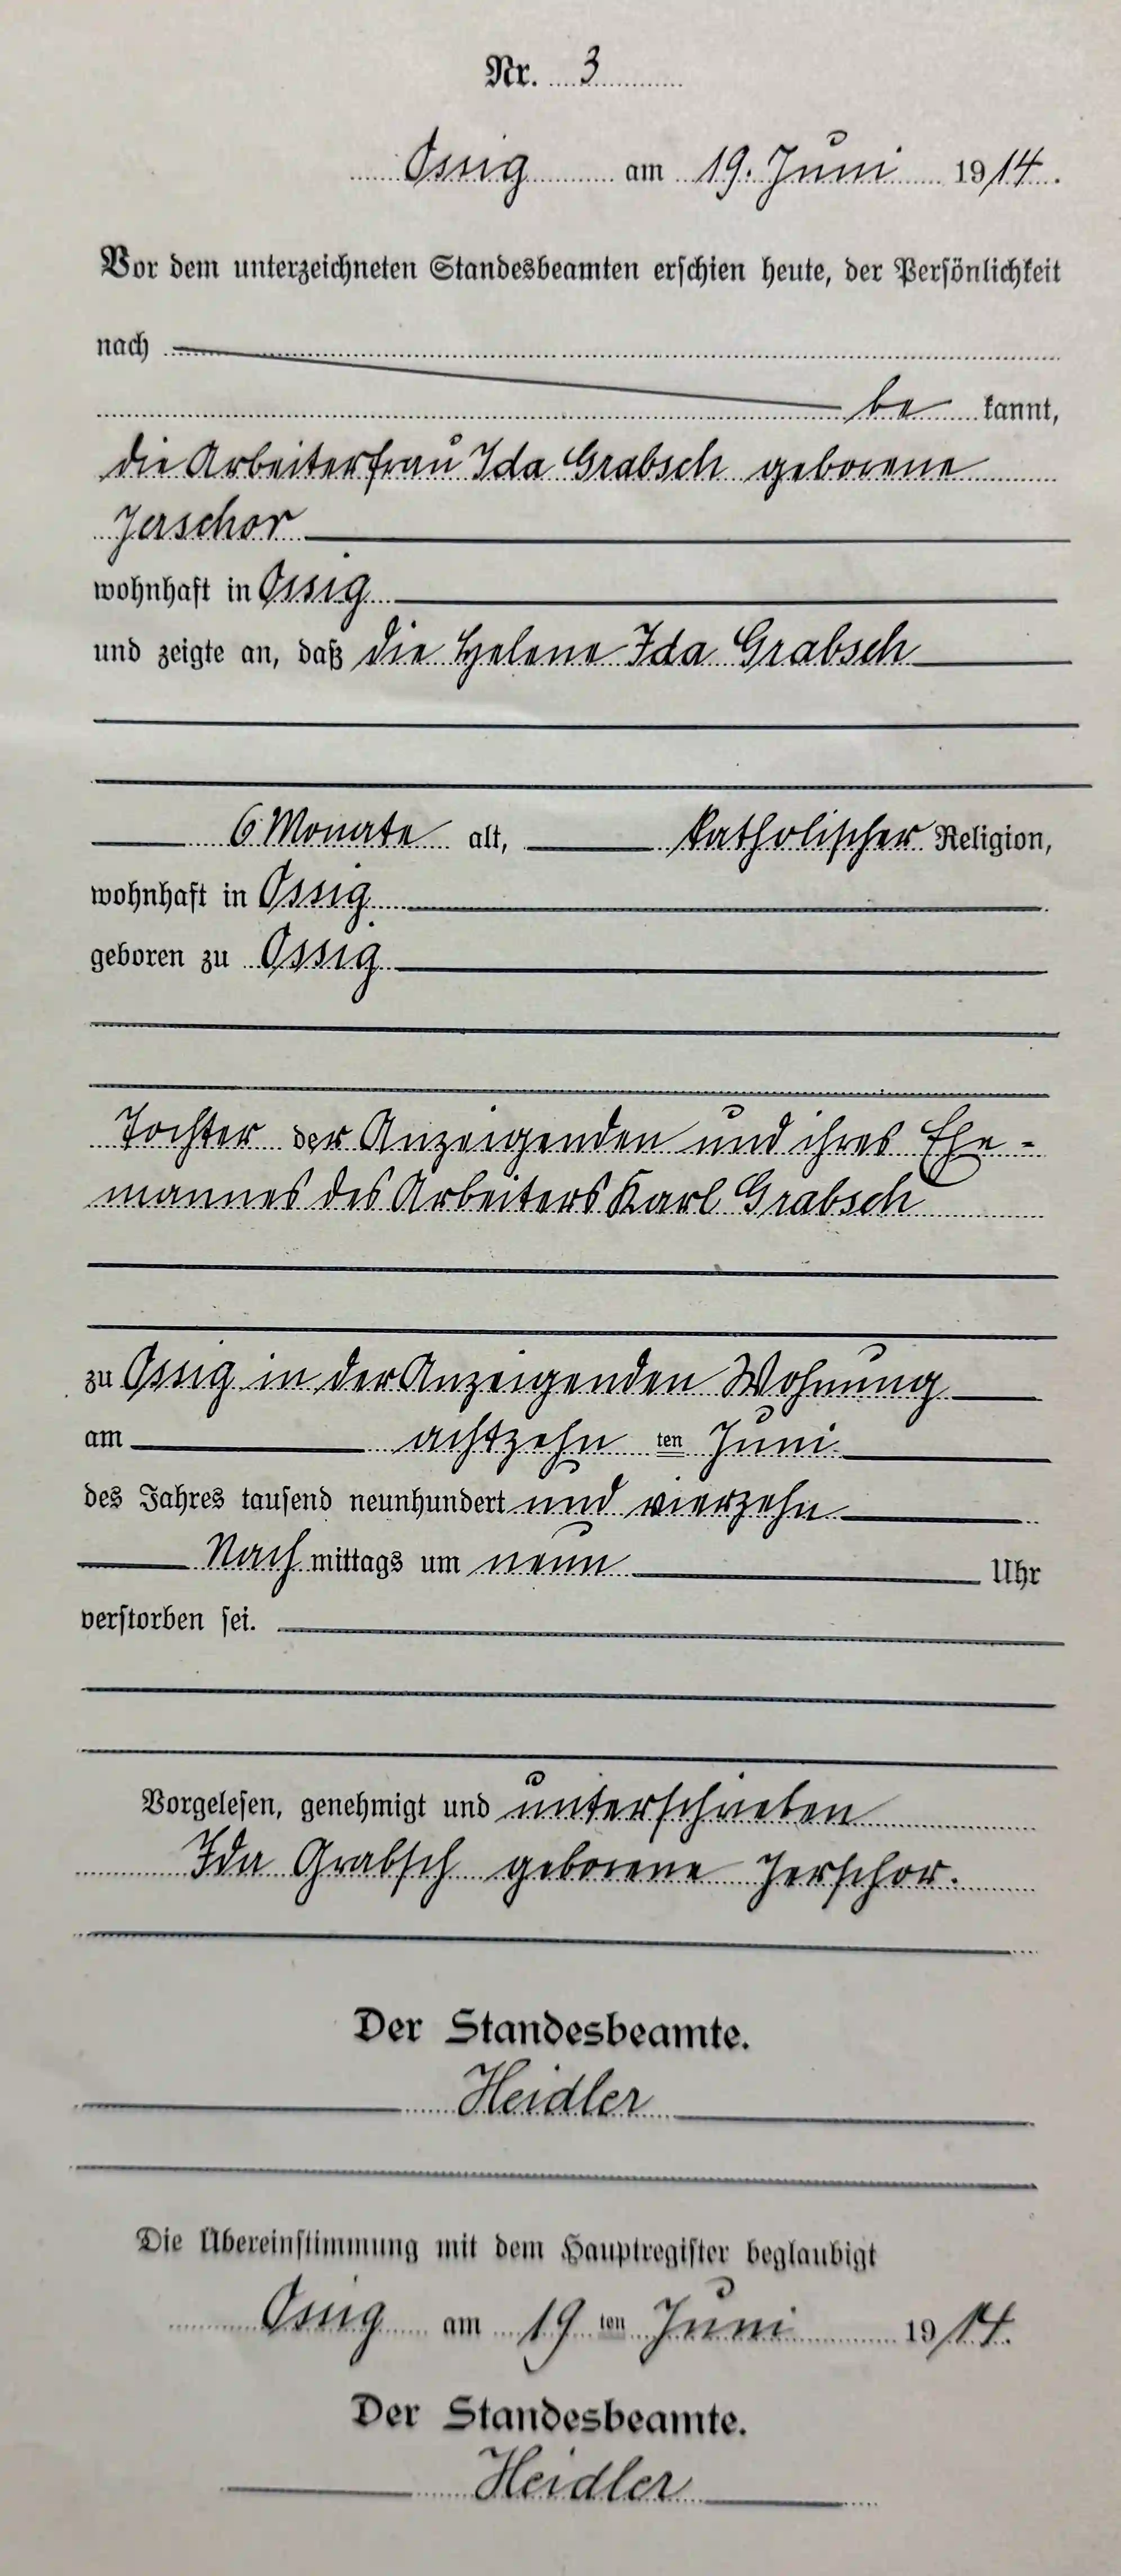 Nr. 3
Ossig am 19. Juni 1914.
Vor dem unterzeichneten Standesbeamten erschien heute, der Persönlichkeit
nach
be kannt,
die Arbeiterfrau Ida Grabsch geborene
Jerschor
wohnhaft in Ossig
und zeigte an, daß die Helene Ida Grabsch
6 Monate alt, katholischer Religion,
wohnhaft in Ossig
geboren zu Ossig
Tochter der Anzeigenden und ihres Ehe-
mannes des Arbeiters Karl Grabsch
zu Ossig in der Anzeigenden Wohnung
am achtzehn ten Juni
des Jahres tausend neunhundert und vierzehn
Nachmittags um neun Uhr
verstorben sei.
Vorgelesen, genehmigt und unterschrieben
Ida Grabsch geborene Jerschor.
Der Standesbeamte.
Heidler
Die Übereinstimmung mit dem Hauptregister beglaubigt
Ossig am 19 ten Juni 1914.
Der Standesbeamte.
Heidler